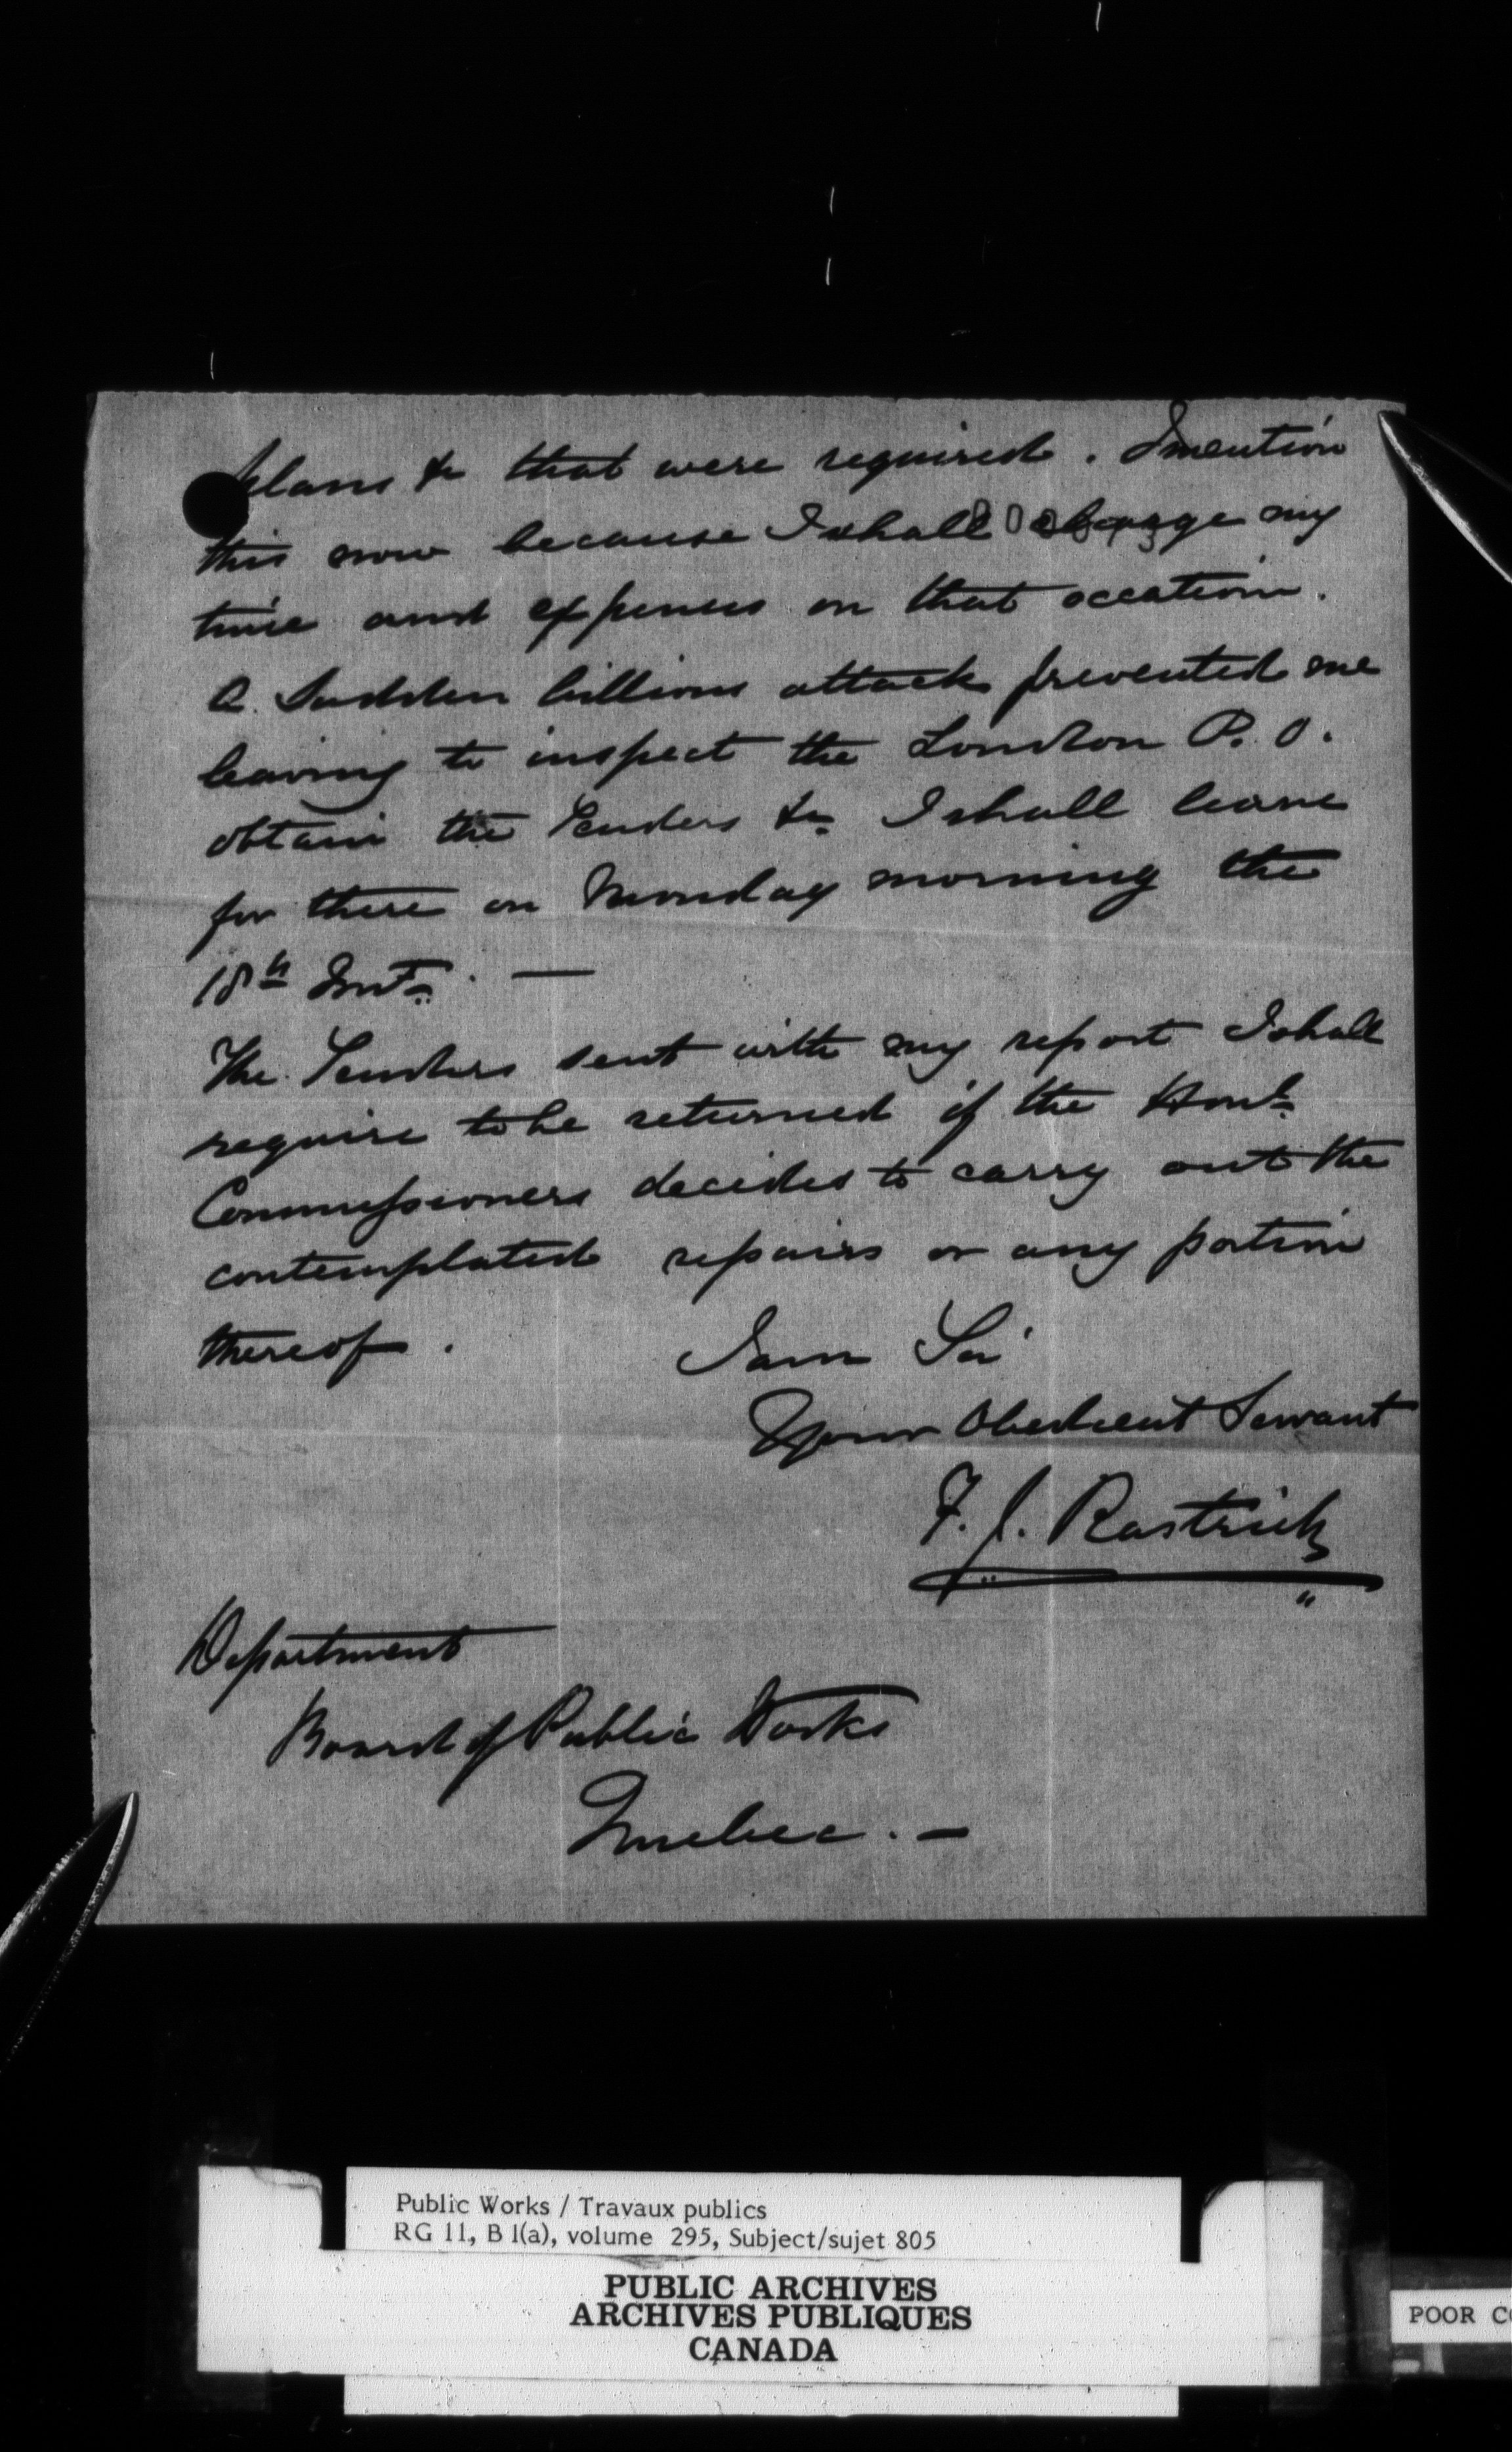 plans &c that were required. I mention
this now because I shall charge my
time and expenses on that occation.
A Sudden billious attack prevented me
leaving to inspect the London P. O.
obtain the Tenders &c I shall leave
for there on Monday morning the
18th Inst. —
The Tenders sent with my report I shall
require to be returned if the Honl
Commissioners decides to carry out the
contemplated repairs or any portion
thereof.
I am Sir
Your Obedient Servant
F. J. Rastrick
Department
Board of Public Works
Quebec. —
Public Works / Travaux publics
RG 11, B 1(a), volume 295, Subject/sujet 805
PUBLIC ARCHIVES
ARCHIVES PUBLIQUES
CANADA
POOR